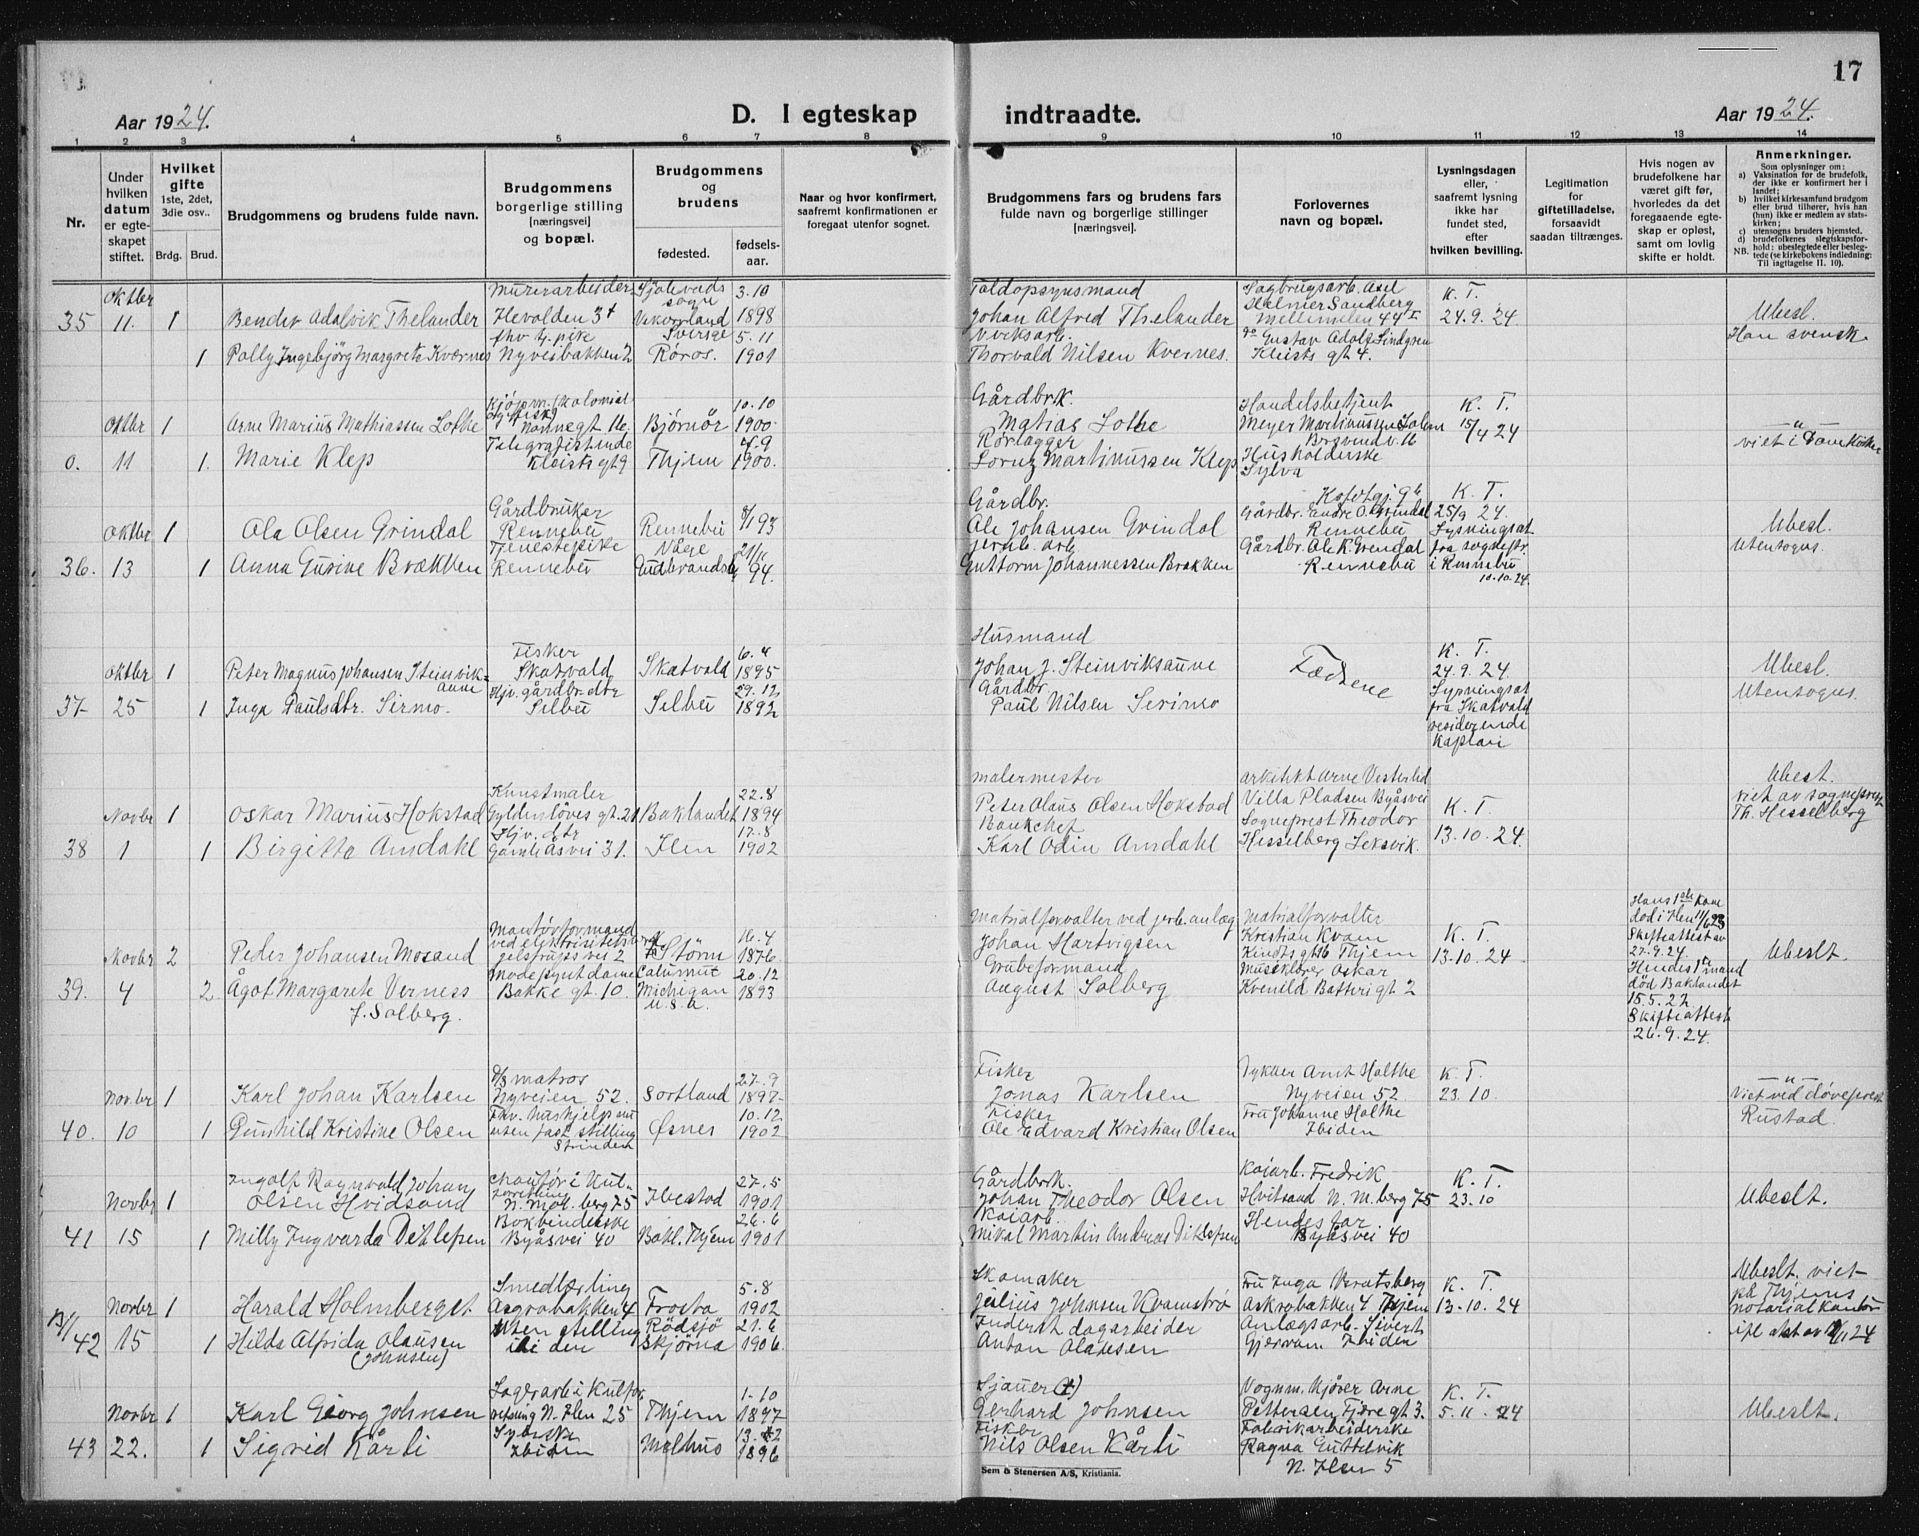 17
Aar 1924.
D. I egteskap
indtraadte.
Aar 1924.
1 2 3 4 5 6 7 8 9 10 11 12 13 14
Nr.
Under hvilken datum er egte-skapet stiftet.
Hvilket gifte 1ste, 2det, 3die osv..
Brdg. Brud.
Brudgommens og brudens fulde navn.
Brudgommens borgerlige stilling [næringsvei] og bopæl.
Brudgommens og brudens
fødested. fødsels-aar.
Naar og hvor konfirmert, saafremt konfirmationen er foregaat utenfor sognet.
Brudgommens fars og brudens fars fulde navn og borgerlige stillinger [næringsvei].
Forlovernes navn og bopæl.
Lysningsdagen eller, saafremt lysning ikke har fundet sted, efter hvilken bevilling.
Legitimation for giftetilladelse, forsaavidt saadan tiltrænges.
Hvis nogen av brudefolkene har været gift før, hvorledes da det foregaaende egte-skap er opløst, samt om lovlig skifte er holdt.
Anmerkninger.
Som oplysninger om:
a) Vaksination før de brudefolk, der ikke er konfirmert her i landet;
b) hvilket kirkesamfund brudgom eller brud tilhører, hvis han (hun) ikke er medlem av stats-kirken;
c) utensogns bruders hjemsted.
d) brudefolkenes slegtskapsfor-hold: ubeslegtede eller besleg-tede (se kirkebokens indledning:
NB. Til iagttagelse II. 10).
35 Oktbr 11. 1 Bender Adalvik Thelander Murerarbeider 3.10 1898 Toldopsynsmand Johan Alfred Thelander K. T. 24.9.24. Ubesl. Han svensk
1 Polly Ingebjörg Margrete Kværnes Nyveibakken 2 Röros. 5.11 1901 Thorvald Nilsen Kvernes. Gustav Adolf Lindgren Kleists gt 4.
Oktbr 1 Arne Marius Mathiassen Lothe Nonnegt 16. Bjørnør 10.10 1900 Gårdbrk. Matias Lothe Handelsbetjent K. T. 15/9 24 viet i Domkirke
0. 11 1. Marie Klep Kleists gt 9 Thjem 1900. Rørlægger Lorntz Martinussen Klep Husholderske Sylva
Oktbr 1 Ola Olsen Grindal Gårdbruker Rennebu Rennebu 93 Gårdbr. Ole Johansen Grindal Rennebu K. T. 25/9 24. Lysningsat fra sognepr. i Rennebu 10.10.24. Ubesl. Utensogns.
36. 13 1 Anna Gurine Brækken Tjenestepike Rennebu Våge 94. jernb. arb. Guttorm Johannessen Brækken Gårdbr. Ole K. Grendal Rennebu
Oktbr 1 Peter Magnus Johansen Steinviksaune Fisker Skatvald Skatvald 6.4 1895 Husmand Johan J. Steinviksaune Fædrene K. T. 24.9.24. Lysningsat fra Skatvald residerende Kaplan Ubesl. Utensogns.
37 25 1 Inga Paulsdtr. Sirmo. Hjv. gårdbr. dtr Selbu Selbu 29.12 1892 Gårdbr Paul Nilsen Serimo
Novbr 1 Oskar Marius Hokstad Kunstmaler Gyldenløves gt. 21 Baklandet 22.8 1894 Malermester Peter Olaus Olsen Hokstad Arkitekt Arne Vesterlid Villa Pladsen Byåsvei K. T. 13.10.24. Ubesl. viet av sogneprest Th. Hesselberg
38 1 1 Birgitte Amdahl Hjv. dtr Gamle Åsvei 31. Ilen 17.8 1902 Bankchef Karl Odin Amdahl Sogneprest Theodor Hesselberg Leksvik.
Novbr 2 Peder Johansen Mosand Støren 16.4 1876 Matrialforvalter ved jerb. anlæg Johan Hartvigsen Matrialforvalter Kristian Kvam Kindts gt 16 Thjem K. T. 13.10.24 Hans 1ste kone død i Ilen 11/6 23 Skifteattest av 27.9.24. Ubeslt.
39. 4 2. Ågot Margarete Verness f. Solberg. Bakke gt. 10. Calumut Michigan U.S.A. 20.12 1893 Grubeformand August Solberg Musiklærer Oskar Kvenild Batteri gt 2 Hendes 1ste mand død Baklandet 15.5.22 Skifteattest 26.9.24.
Novbr 1 Karl Johan Karlsen D/S matros Nyveien 52. Sortland 27.9 1897 Fisker Jonas Karlsen Arnt Holthe Nyveien 52 K. T. 23.10 Viet ved døveprest Rustad.
40. 10 1 Gunhild Kristine Olsen uten fast stilling Strinden Øsnes 10.12 1902 Fisker Ole Edvard Kristian Olsen Fru Johanne Holthe Ibiden
Novbr 1 Ingolf Ragnvald Johan Olsen Hvidsand N. Møl. berg 75 Ibestad 27.5 1901 Gårdbrk. Johan Theodor Olsen Kaiarb. Fredrik Hvitsand N. M. berg 75 K. T. 23.10 Ubeslt.
41 15 1 Milly Ingvarda Detlefsen Bokbinderske Byåsvei 40 Bakl. Thjem 26.6 1901 Kaiarb. Mikal Martin Andreas Ditlefsen Hendes far Byåsvei 40
Novbr 1 Harald Holmberget. Smedlærling Frosta 5.8 1902 Skomaker Julius Johnsen Kvamstrø Fru Inga Askrabakken 4 Thjem K. T. 13.10.24 Ubeslt. viet på Thjems notarialkontor
42 15 1 Hilda Alfrida Olausen (Johnsen) Uten stilling Rødsjø Skjørna 21.6 1906. Inderst dagarbeider Anton Olausen Anlægsarb. Sivert Gjervan Ibiden
Novbr 1 Karl Georg Johnsen N. Ilen 25 Thjem 1.10 1897 Sjauer (+) Gerhard Johnsen Vognm. kjører Arne Pettersen Fjære gt 3. K. T. 5.11.24 Ubeslt.
43 22. 1 Sigrid Kårli Syerske Ibiden Melhus 1896 Fisker Nils Olsen Kårli Fabrikarbeiderske Ragna Guttelvik N. Ilen 5
Sem & Stenersen A/S, Kristiania.